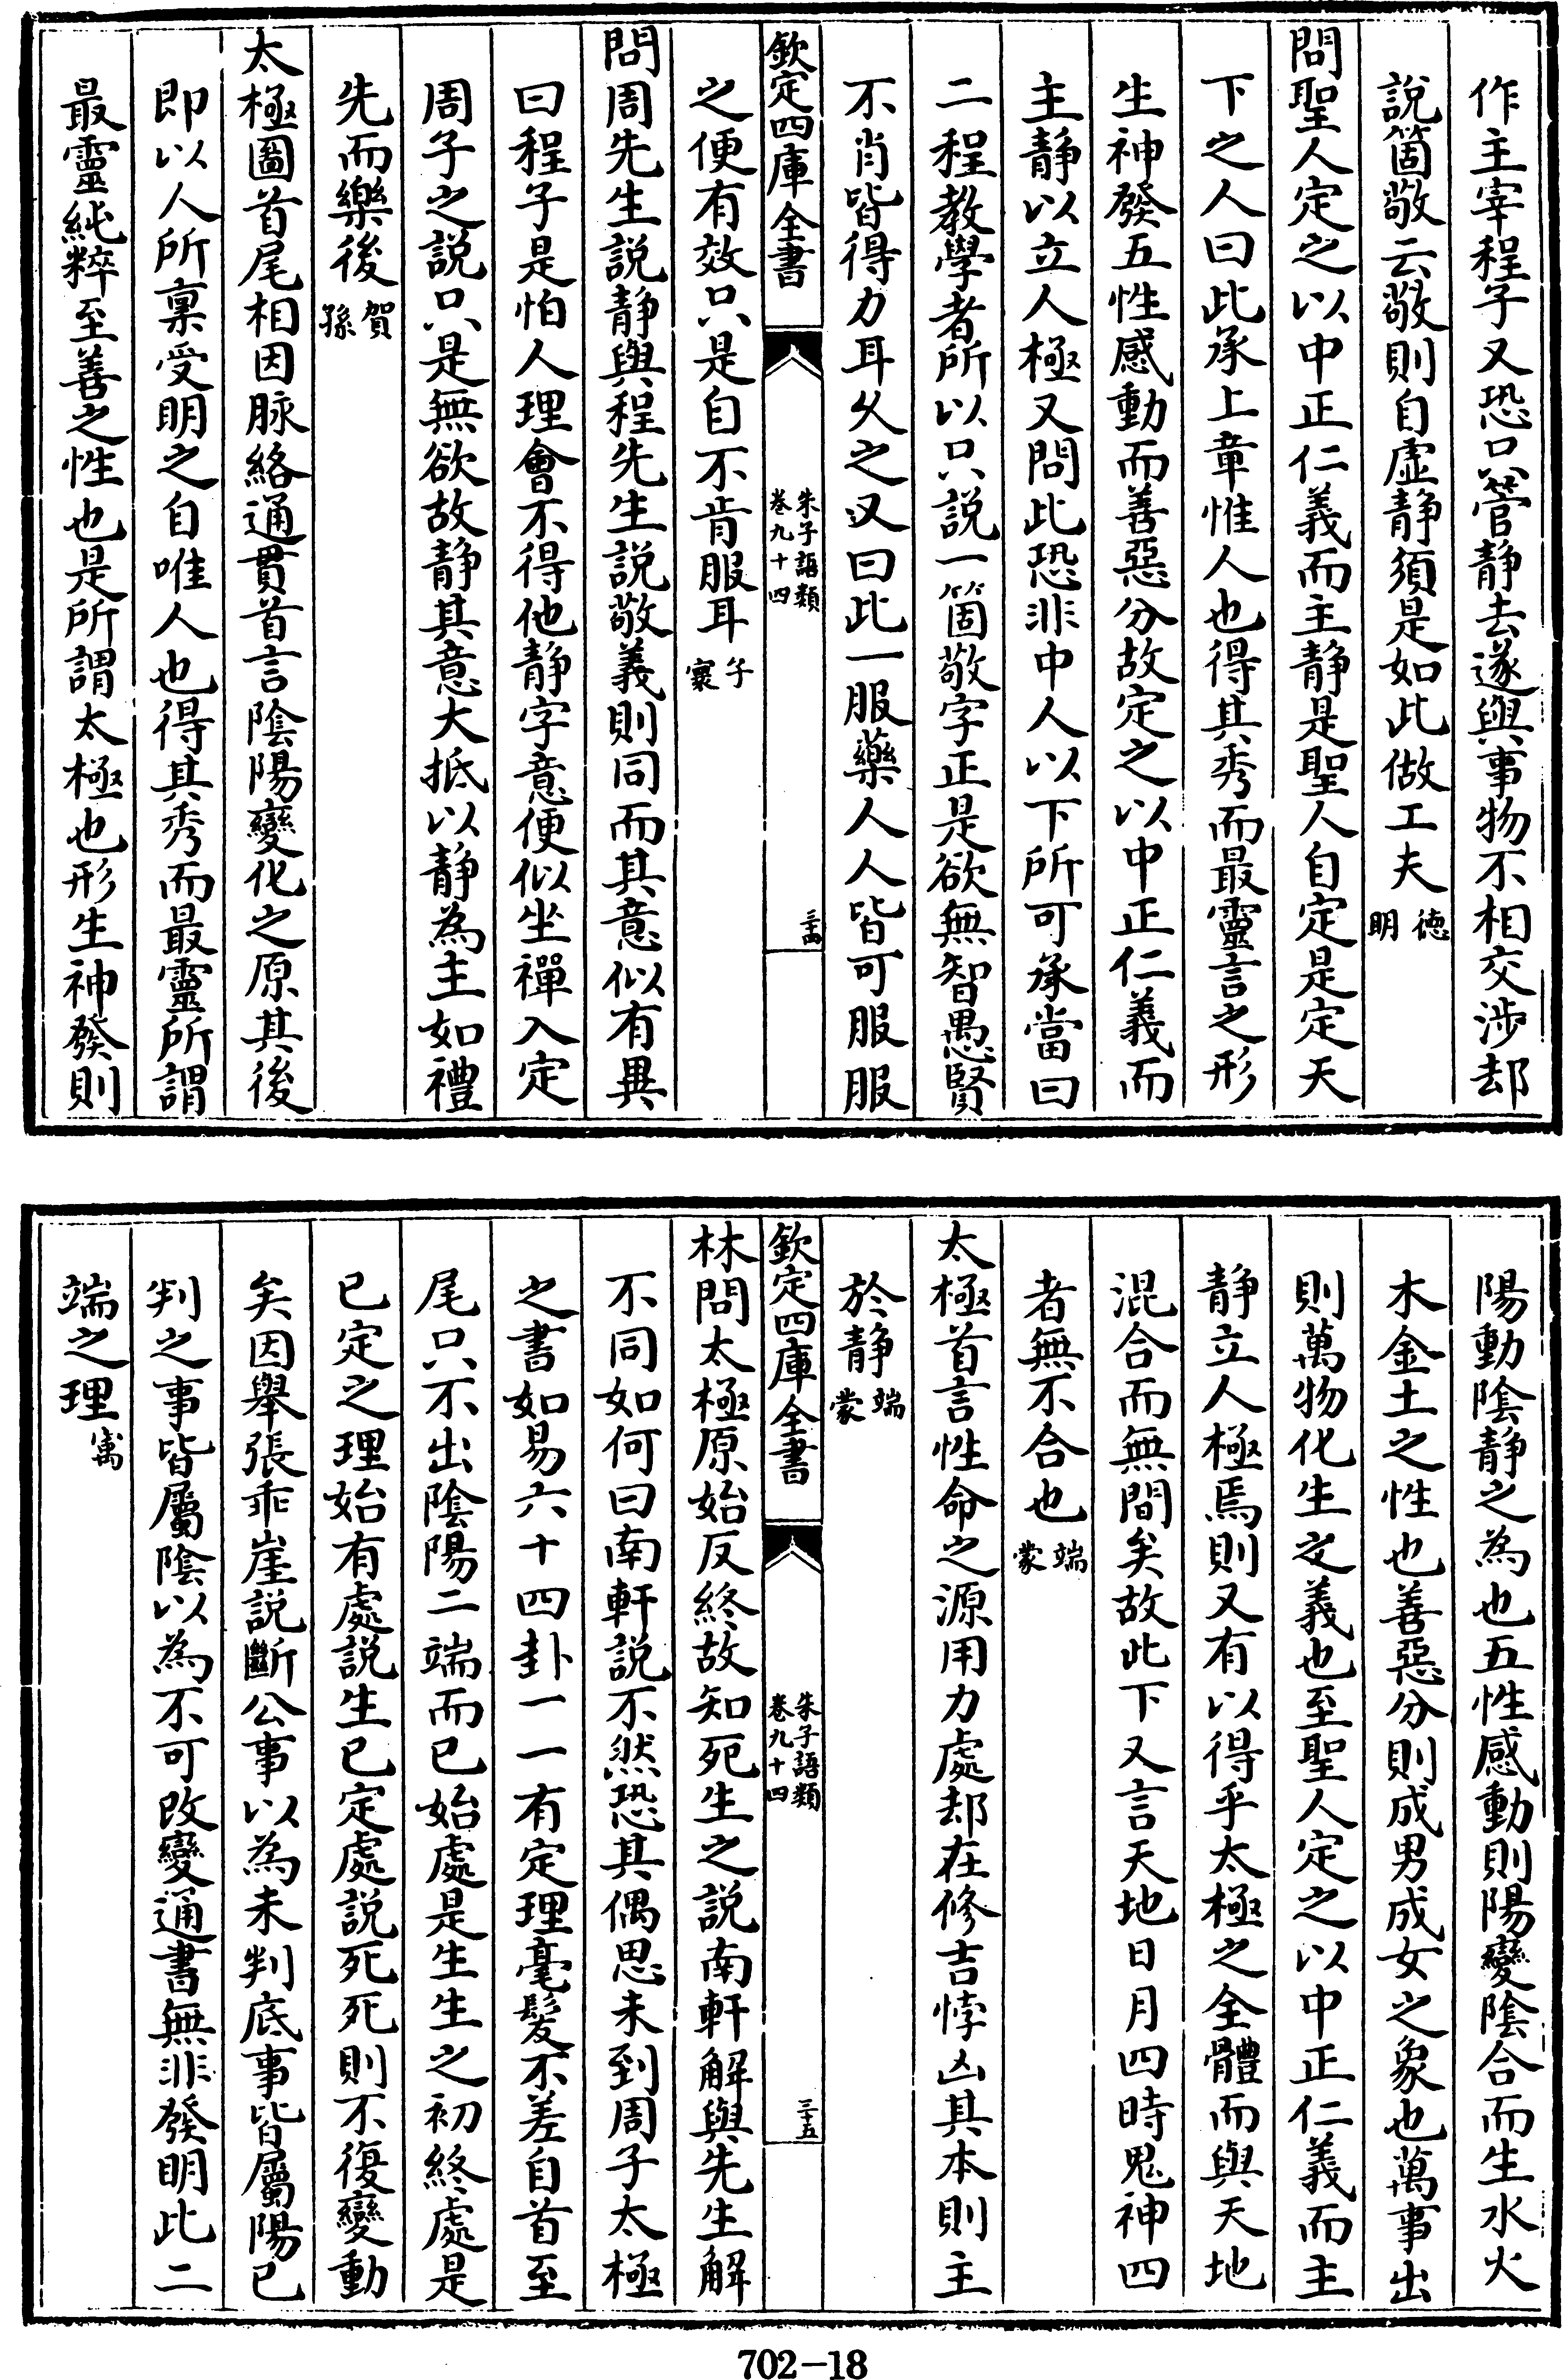 作主宰程子又恐只管静去遂與事物不相交涉却
說箇敬云敬則自虚静須是如此做工夫德明
問聖人定之以中正仁義而主静是聖人自定是定天
下之人曰此承上章惟人也得其秀而最靈言之形
生神發五性感動而善惡分故定之以中正仁義而
主静以立人極又問此恐非中人以下所可承當曰
二程教學者所以只說一箇敬字正是欲無智愚賢
不肖皆得力耳久之又曰此一服藥人人皆可服服
欽定四庫全書
朱子語類
卷九十四
三十四
之便有效只是自不肯服耳子寰
問周先生說静與程先生說敬義則同而其意似有異
曰程子是怕人理會不得他静字意便似坐禪入定
周子之說只是無欲故静其意大抵以静為主如禮
先而樂後賀孫
太極圖首尾相因脉絡通貫首言陰陽變化之原其後
即以人所稟受明之自唯人也得其秀而最靈所謂
最靈純粹至善之性也是所謂太極也形生神發則
陽動陰静之為也五性感動則陽變陰合而生水火
木金土之性也善惡分則成男成女之象也萬事出
則萬物化生之義也至聖人定之以中正仁義而主
静立人極焉則又有以得乎太極之全體而與天地
混合而無間矣故此下又言天地日月四時鬼神四
者無不合也端蒙
太極首言性命之源用力處却在修吉悖凶其本則主
於静端蒙
欽定四庫全書
朱子語類
卷九十四
三十五
林問太極原始反終故知死生之說南軒解與先生解
不同如何曰南軒說不然恐其偶思未到周子太極
之書如易六十四卦一一有定理毫髪不差自首至
尾只不出陰陽二端而已始處是生生之初終處是
已定之理始有處說生已定處說死死則不復變動
矣因舉張乖崖說斷公事以為未判底事皆屬陽已
判之事皆屬陰以為不可改變通書無非發明此二
端之理㝢
702-18